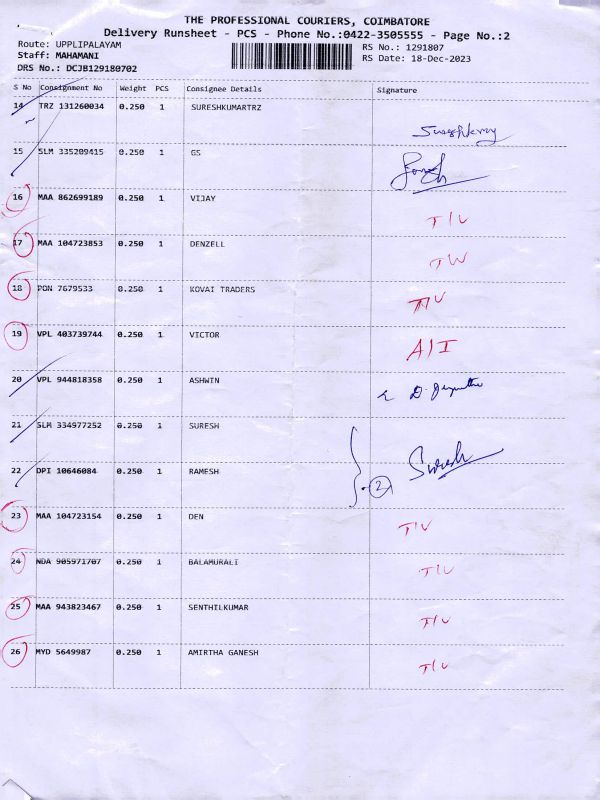 THE PROFESSIONAL COURIERS, COIMBATORE
Delivery Runsheet - PCS - Phone No.:0422-3505555 - Page No.:2
Route: UPPLIPALAYAM
RS No.: 1291807
Staff: MAHAMANI
RS Date: 18-Dec-2023
DRS No.: DCJB129180702
S No Consignment No Weight PCS Consignee Details Signature
14 TRZ 131260034 0.250 1 SURESHKUMARTRZ
15 SLM 335209415 0.250 1 GS
16 MAA 862699189 0.250 1 VIJAY
T/U
17 MAA 104723853 0.250 1 DENZELL
18 PON 7679533 0.250 1 KOVAI TRADERS
T/U
19 VPL 403739744 0.250 1 VICTOR
A/I
20 VPL 944818358 0.250 1 ASHWIN
21 SLM 334977252 0.250 1 SURESH
Suresh
22 DPI 10646084 0.250 1 RAMESH
2
23 MAA 104723154 0.250 1 DEN
T/U
24 NDA 905971707 0.250 1 BALAMURALI
T/U
25 MAA 943823467 0.250 1 SENTHILKUMAR
T/U
26 MYD 5649987 0.250 1 AMIRTHA GANESH
T/U